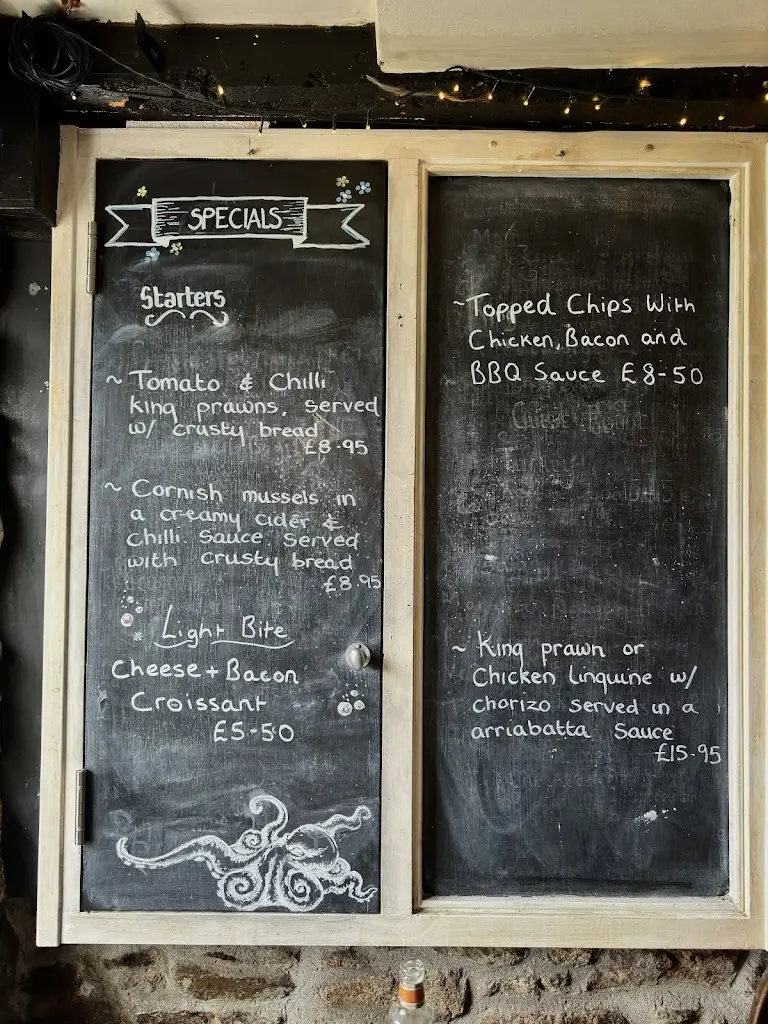 SPECIALS
Starters
~ Tomato & Chilli
king prawns, served
w/ crusty bread
£8.95
~ Cornish mussels in
a creamy cider &
chilli sauce served
with crusty bread
£8.95
Light Bite
Cheese + Bacon
Croissant
£5-50
~Topped Chips With
Chicken, Bacon and
BBQ Sauce £8-50
~ King prawn or
Chicken linguine w/
chorizo served in a
arriabatta sauce
£15.95